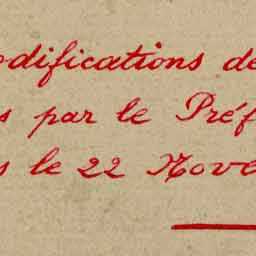 odifications de
s par le Préf
s le 22 Nove